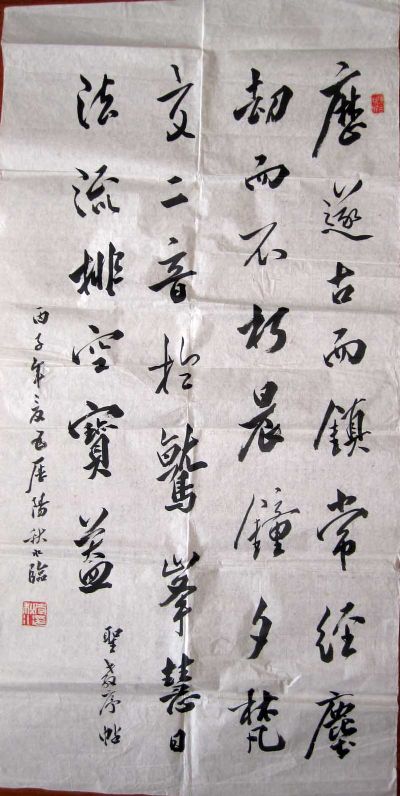 歷遂古而鎮常經塵
劫而不朽晨鐘夕梵
交二音於鷲峯慧日
法流排空寶蓋
聖教序帖
丙子年夏陽秋臨